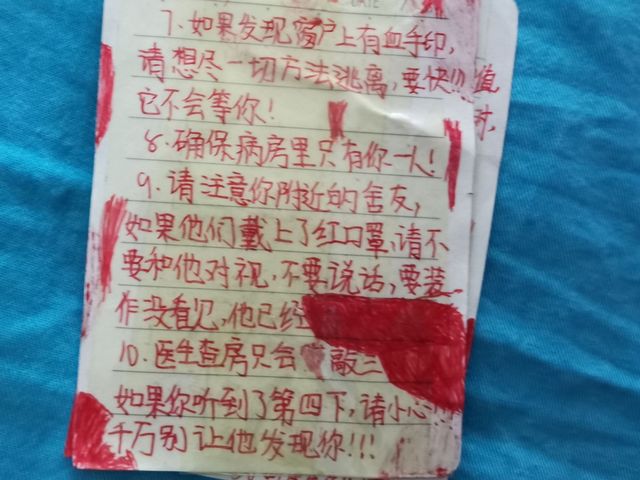 DATE
7.如果发现窗户上有血手印,
请想尽一切方法逃离,要快!!!
它不会等你!
8.确保病房里只有你一人!
9.请注意你附近的舍友,
如果他们戴上了红口罩,请不
要和他对视,不要说话,要装
作没看见,他已经
10.医生查房只会 敲三
如果你听到了第四下,请小心!!!
千万别让他发现你!!!
值